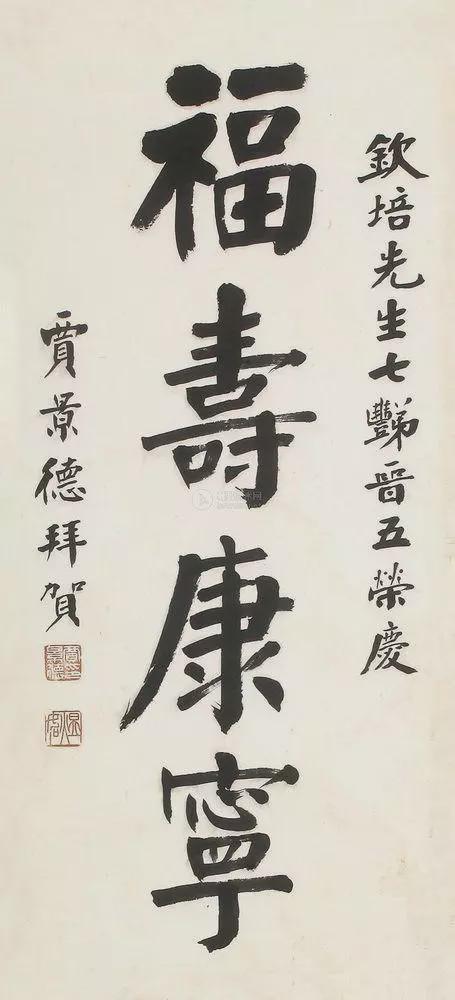 欽培先生七豒晉五榮慶
福壽康寧
賈景德拜賀
賈景德